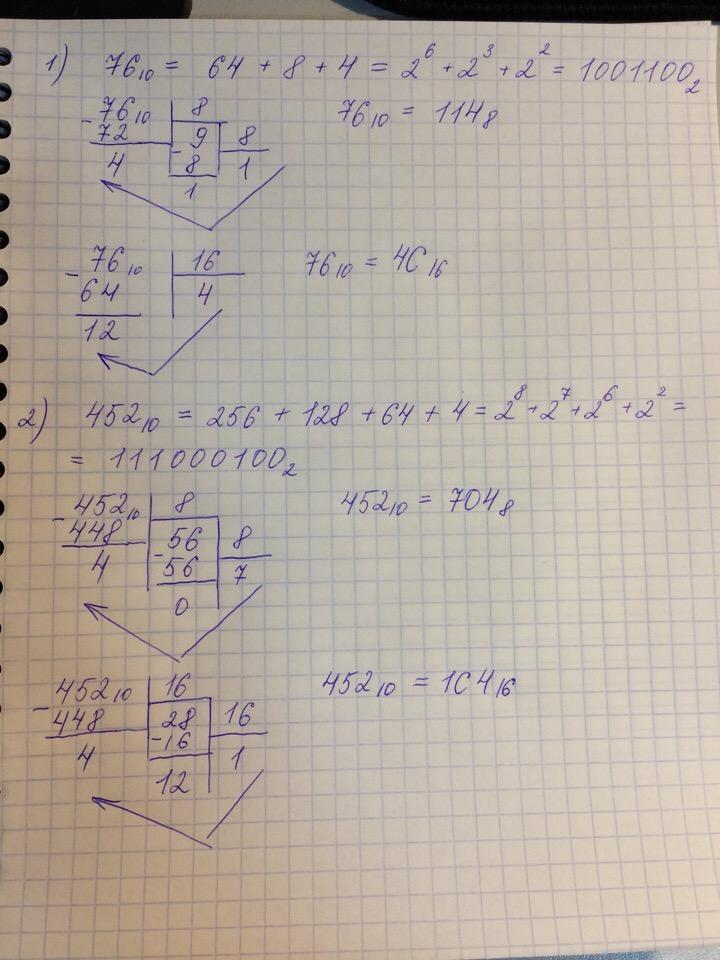 1) 76₁₀ = 64 + 8 + 4 = 2⁶ + 2³ + 2² = 1001100₂
- 76₁₀ | 8
72 | 9 | 8
4 - 8 | 1
1
76₁₀ = 114₈
- 76₁₀ | 16
64 | 4
12
76₁₀ = 4C₁₆
2) 452₁₀ = 256 + 128 + 64 + 4 = 2⁸ + 2⁷ + 2⁶ + 2² =
= 111000100₂
- 452₁₀ | 8
448 | - 56 | 8
4 56 | 7
0
452₁₀ = 704₈
- 452₁₀ | 16
448 | 28 | 16
4 - 16 | 1
12
452₁₀ = 1C4₁₆